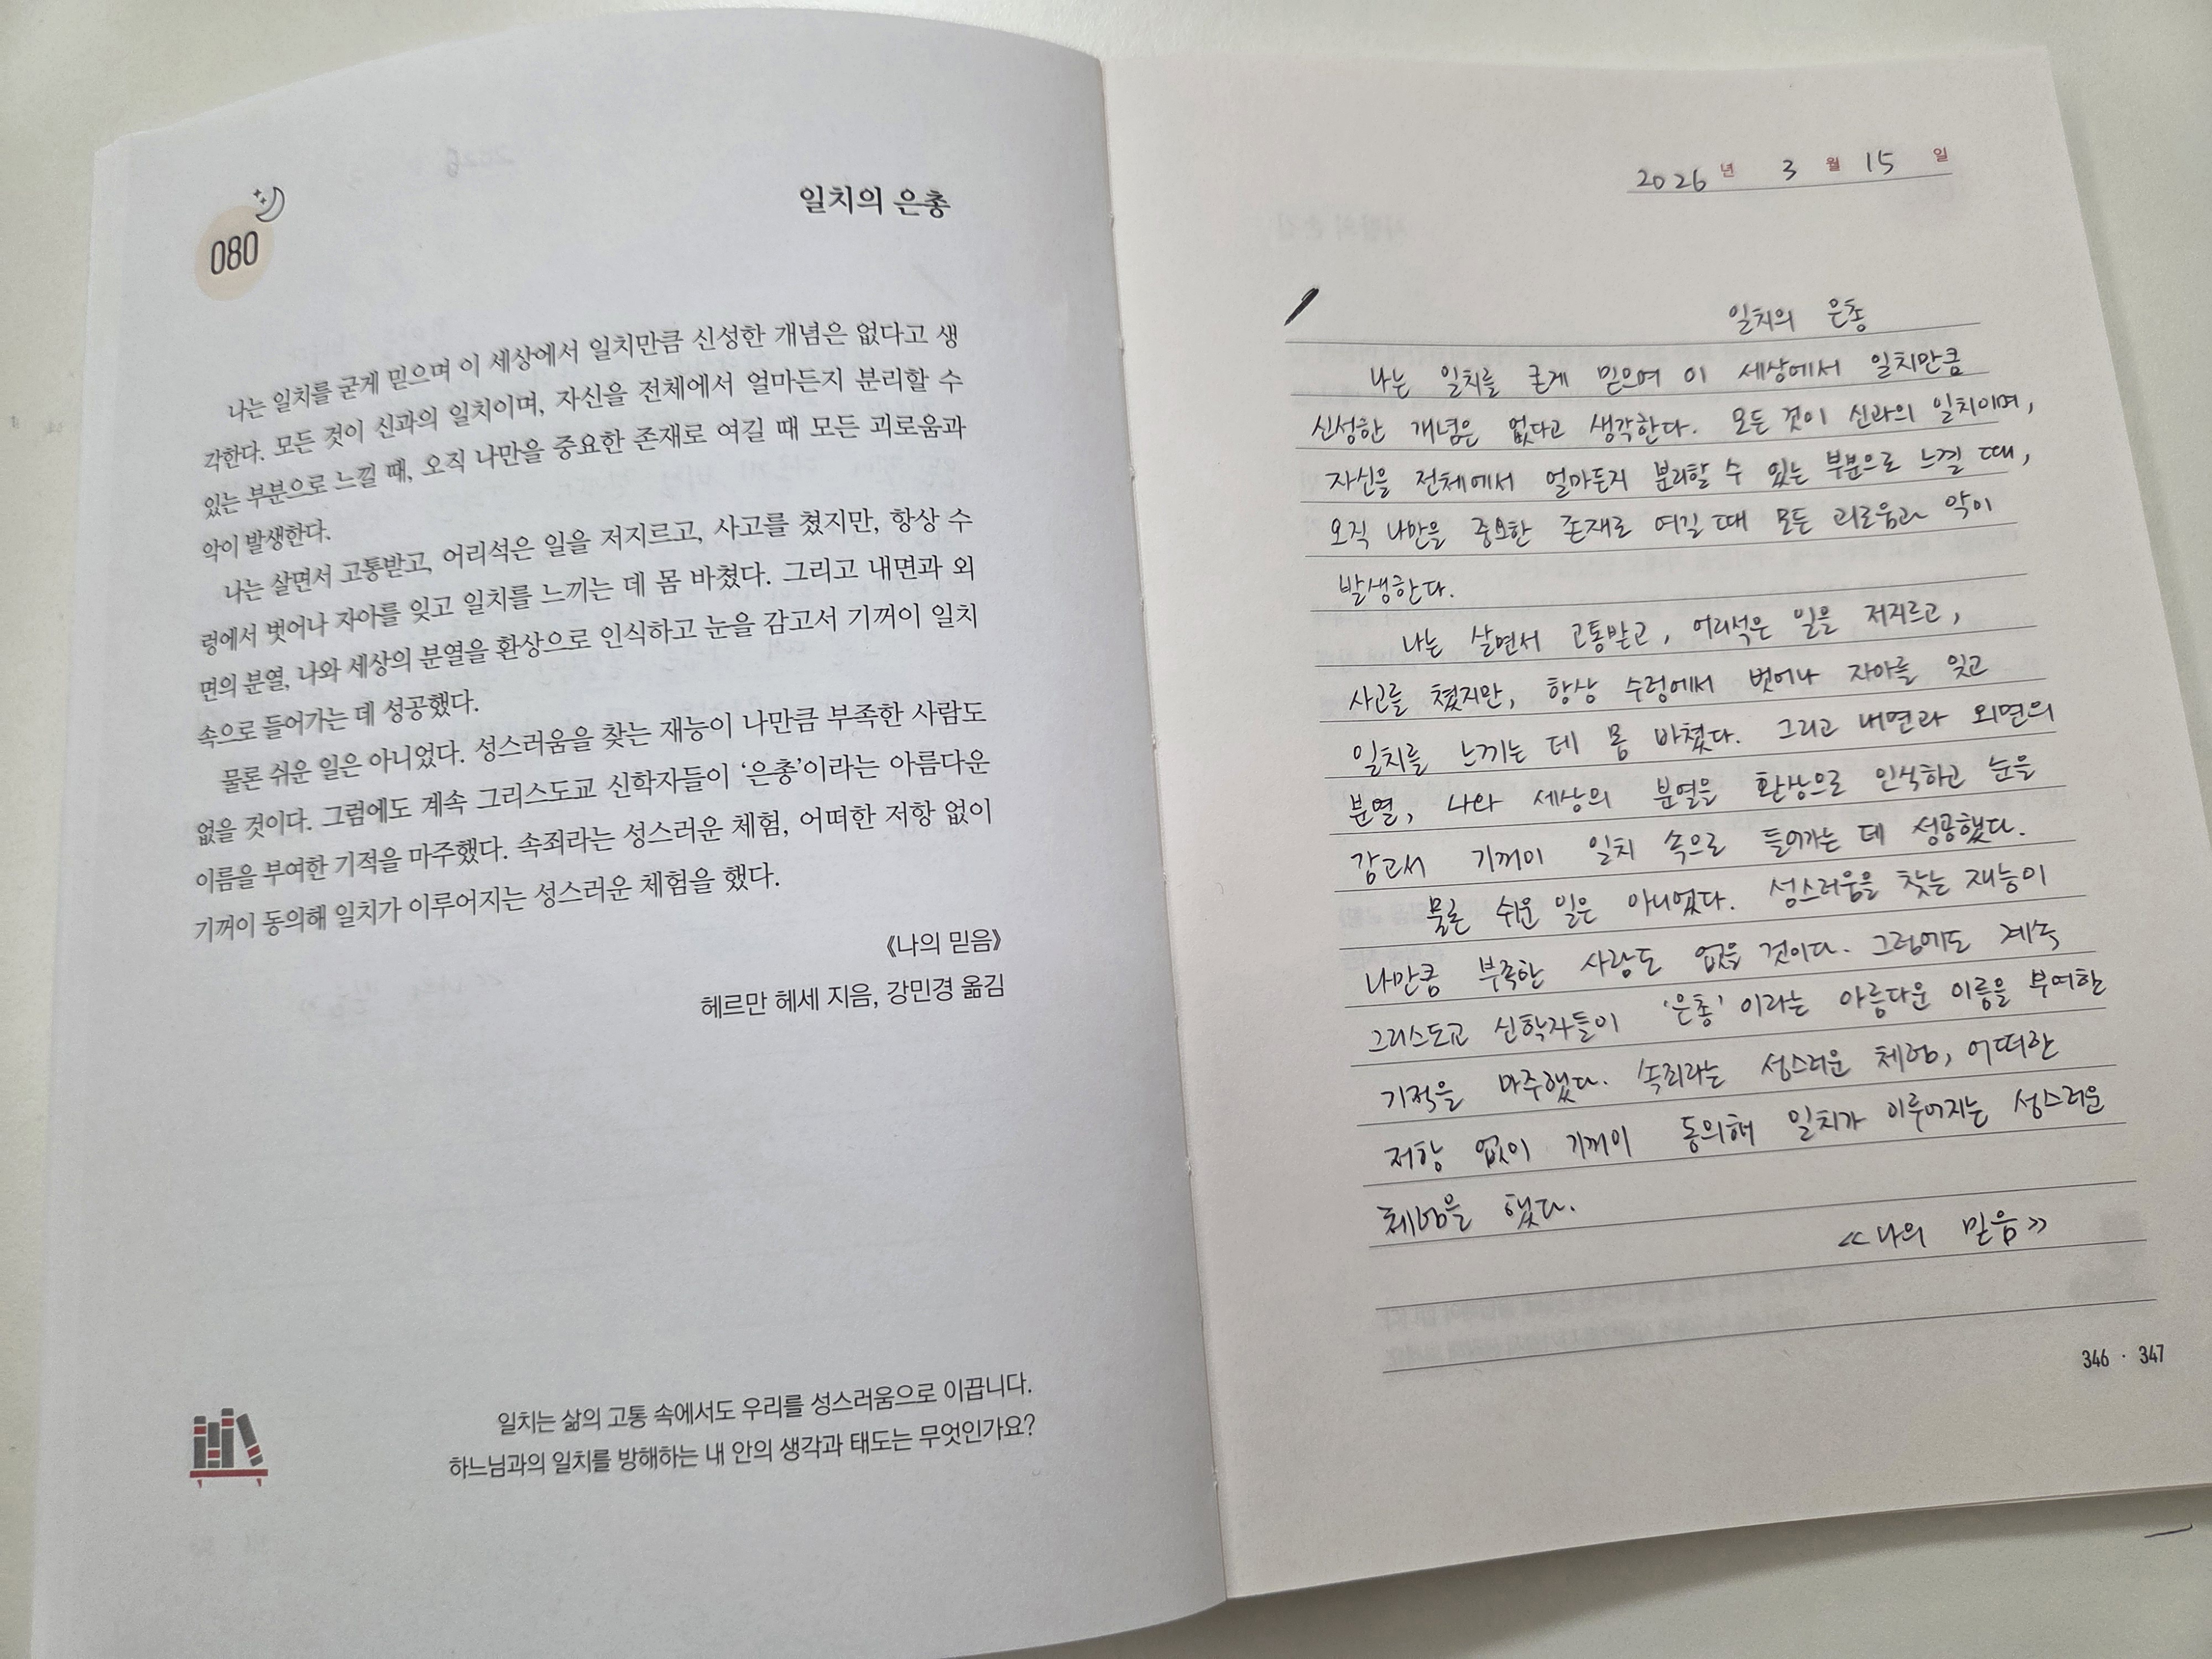 080
일치의 은총
나는 일치를 굳게 믿으며 이 세상에서 일치만큼 신성한 개념은 없다고 생
각한다. 모든 것이 신과의 일치이며, 자신을 전체에서 얼마든지 분리할 수
있는 부분으로 느낄 때, 오직 나만을 중요한 존재로 여길 때 모든 괴로움과
악이 발생한다.
나는 살면서 고통받고, 어리석은 일을 저지르고, 사고를 쳤지만, 항상 수
렁에서 벗어나 자아를 잊고 일치를 느끼는 데 몸 바쳤다. 그리고 내면과 외
면의 분열, 나와 세상의 분열을 환상으로 인식하고 눈을 감고서 기꺼이 일치
속으로 들어가는 데 성공했다.
물론 쉬운 일은 아니었다. 성스러움을 찾는 재능이 나만큼 부족한 사람도
없을 것이다. 그럼에도 계속 그리스도교 신학자들이 ‘은총’이라는 아름다운
이름을 부여한 기적을 마주했다. 속죄라는 성스러운 체험, 어떠한 저항 없이
기꺼이 동의해 일치가 이루어지는 성스러운 체험을 했다.
《나의 믿음》
헤르만 헤세 지음, 강민경 옮김
일치는 삶의 고통 속에서도 우리를 성스러움으로 이끕니다.
하느님과의 일치를 방해하는 내 안의 생각과 태도는 무엇인가요?
2026 년 3 월 15 일
일치의 은총
나는 일치를 굳게 믿으며 이 세상에서 일치만큼
신성한 개념은 없다고 생각한다. 모든 것이 신과의 일치이며,
자신을 전체에서 얼마든지 분리할 수 있는 부분으로 느낄 때,
오직 나만을 중요한 존재로 여길 때 모든 괴로움과 악이
발생한다.
나는 살면서 고통받고, 어리석은 일을 저지르고,
사고를 쳤지만, 항상 수렁에서 벗어나 자아를 잊고
일치를 느끼는 데 몸 바쳤다. 그리고 내면과 외면의
분열, 나와 세상의 분열을 환상으로 인식하고 눈을
감고서 기꺼이 일치 속으로 들어가는 데 성공했다.
물론 쉬운 일은 아니었다. 성스러움을 찾는 재능이
나만큼 부족한 사람도 없을 것이다. 그럼에도 계속
그리스도교 신학자들이 ‘은총’ 이라는 아름다운 이름을 부여한
기적을 마주했다. 속죄라는 성스러운 체험, 어떠한
저항 없이 기꺼이 동의해 일치가 이루어지는 성스러운
체험을 했다.
《나의 믿음》
346 · 347